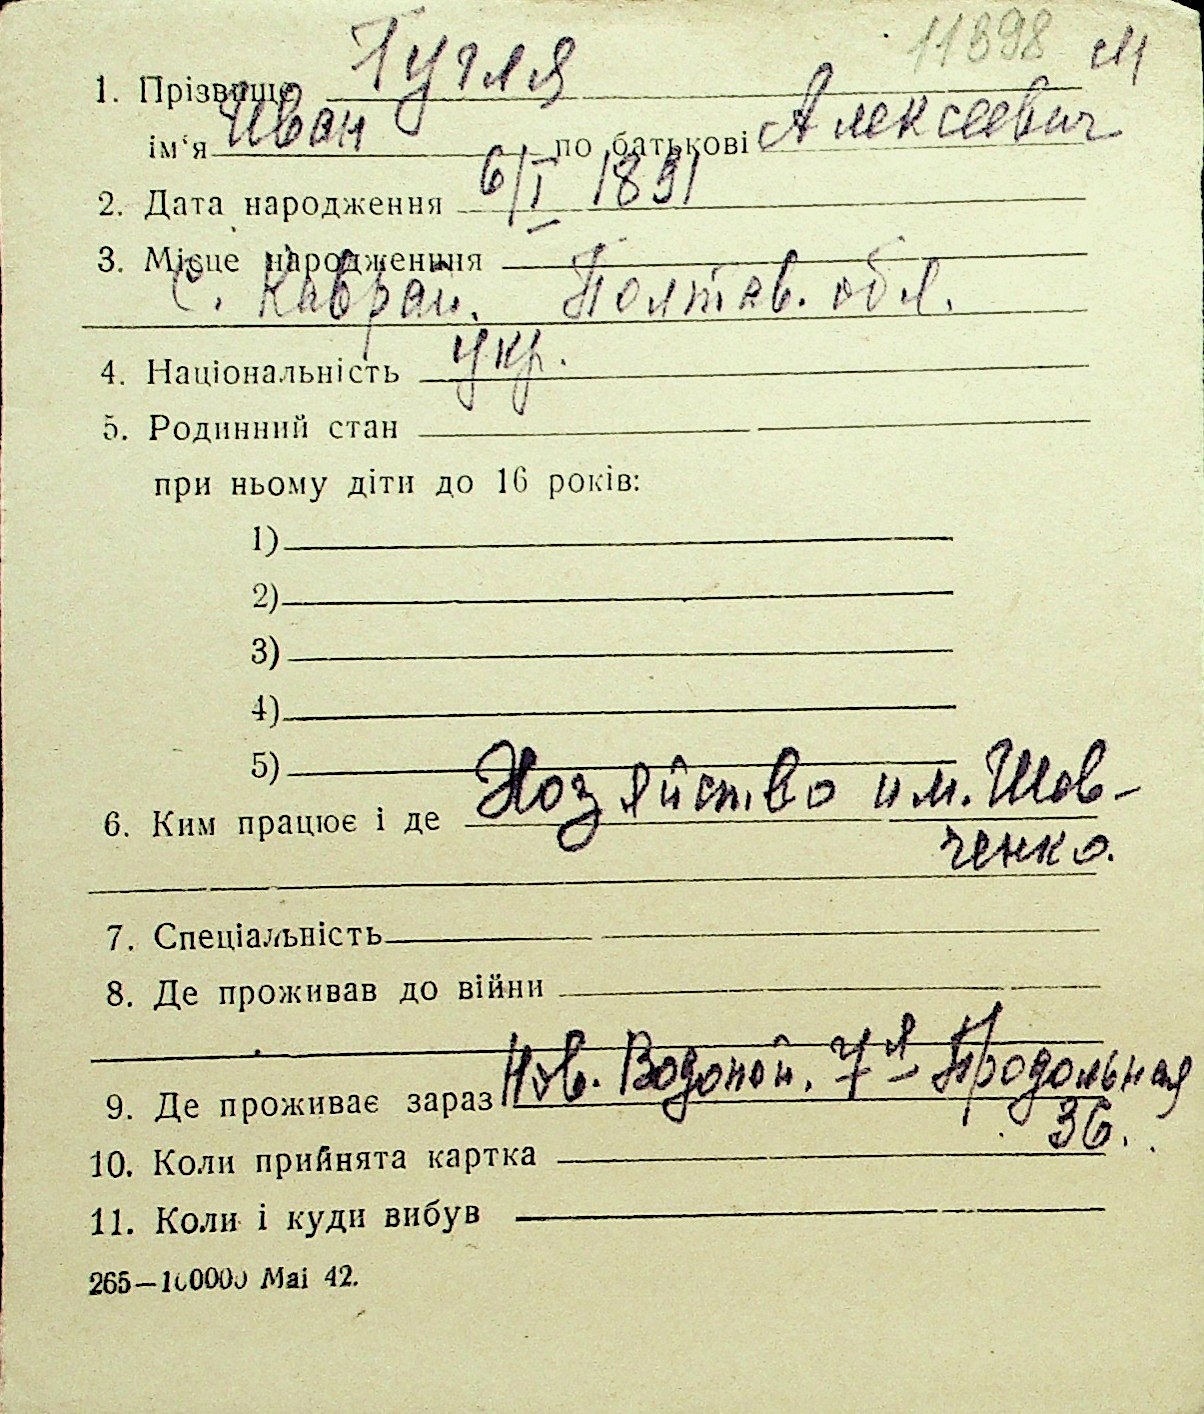 11898 М
1. Прізвище Гугля
ім'я Иван по батькові Алексеевич
2. Дата народження 6/I 1891
3. Місце народженння
с. Каврай. Полтав. обл.
4. Національність укр.
5. Родинний стан
при ньому діти до 16 років:
1)
2)
3)
4)
5)
6. Ким працює і де Хозяйство им. Шев-
ченко.
7. Спеціальність
8. Де проживав до війни
9. Де проживає зараз Нов. Водопой. 7я - Продольная
36.
10. Коли прийнята картка
11. Коли і куди вибув
265—100000 Mai 42.